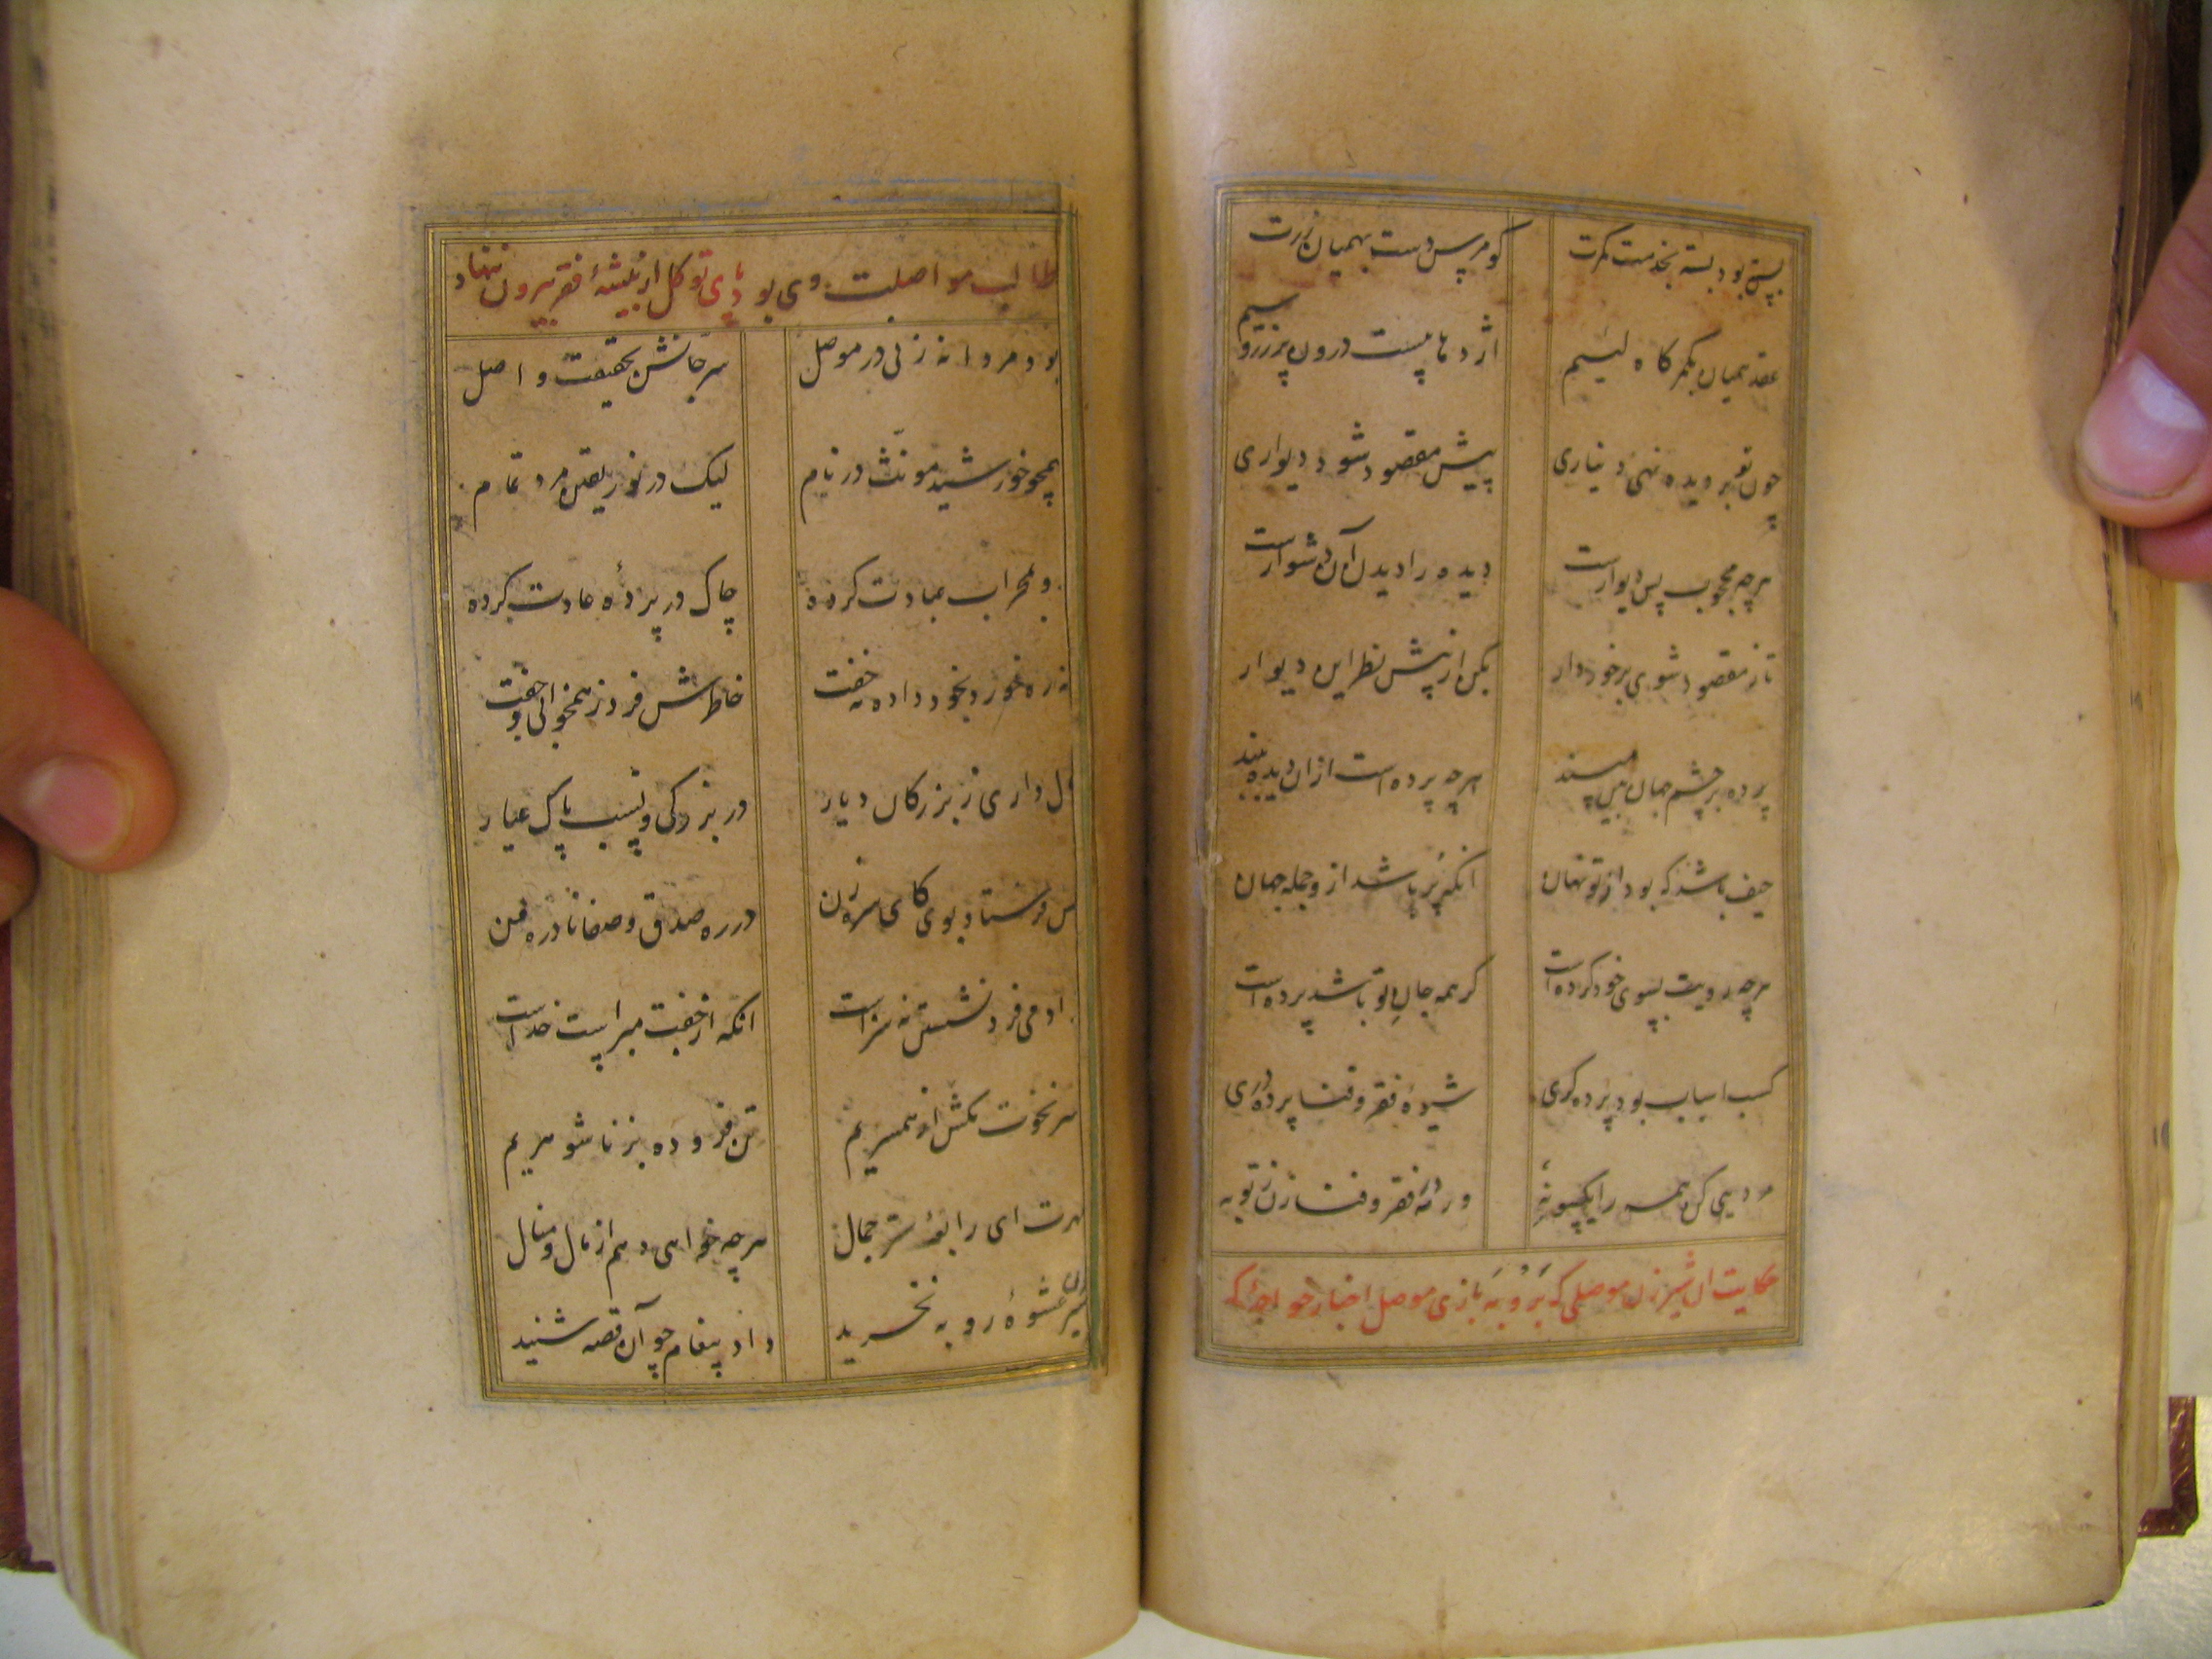 بس بود بسته بخدمت کمرت کو مرس دست بهمیان زرت
عقد همیان بکمرگاه لئیم اژدهاییست درون پر زر و سیم
چون تو بر دیده نهی دیناری پیش مقصود شود دیواری
هر چه محجوب پس دیوارست دیده را دیدن آن دشوارست
تا ز مقصود شوی برخوردار بکن از پیش نظر این دیوار
پرده بر چشم جهان بین مپسند هر چه پرده است ازان دیده ببند
حیف باشد که بود از تو نهان انکه پر باشد ازو جمله جهان
هر چه رویت بسوی خود کرده است گر همه جان تو باشد پرده است
کسب اسباب بود پرده گری شیوهٔ فقر و فنا پرده دری
مردیی کن همه را یکسو نه ور دم فقر و فنا زن تو به
حکایت آن شیرزن موصلی که بروبه بازی موصل اخبار خواجه‌ای که
طالب مواصلت وی بود پای توکل از بیشهٔ فقر بیرون ننهاد
بود مردانه زنی در موصل سر جانش بحقیقت واصل
همچو خورشید مونث در نام لیک در نور یقین مرد تمام
رو بمحراب عبادت کرده چاک در پردهٔ عادت کرده
نه ره خورد بخود داده نه خفت خاطرش فرد ز همخوابی و جفت
مال داری ز بزرگان دیار در بزرگی و نسب پاک عیار
کس فرستاد بوی کای سره زن در ره صدق و صفا نادره فن
ادمی فرد نشستن نه سزاست انکه از جفت مبراست خداست
سر نخوت مکش از همسریم تن فرو ده بزناشوهریم
مهرت ای رابعهٔ ستر جمال هر چه خواهی دهم از مال و منال
شیرزن عشوهٔ روبه نخرید داد پیغام چو آن قصه شنید